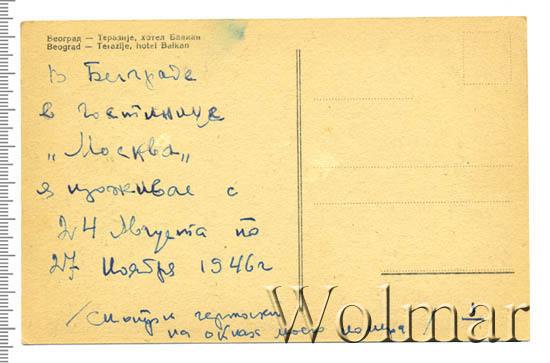 Београд — Теразије, хотел Балкан
Beograd — Terazije, hotel Balkan
В Белграде
в гостинице
„Москва„
я проживал с
24 Августа по
27 Ноября 1946г
/смотри
на окнах моего номера/
Wolmar